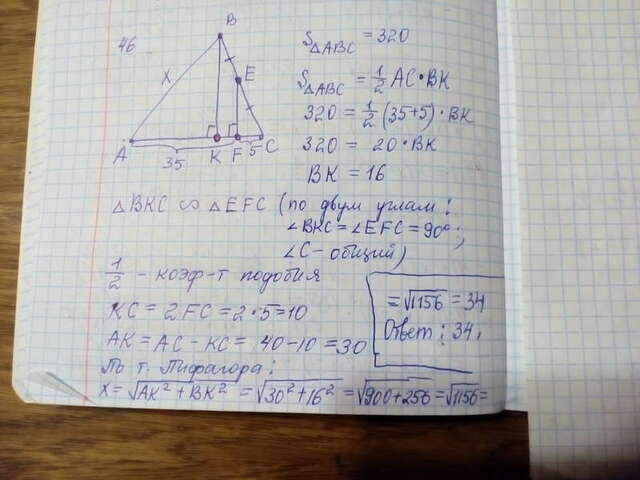 46
B
X
E
A
K
F
C
35
5
S△ABC = 320
S△ABC = 1/2 AC·BK
320 = 1/2 (35+5)·BK
320 = 20·BK
BK = 16
△BKC ∽ △EFC (по двум углам:
∠BKC = ∠EFC = 90°;
∠C - общий)
1/2 - коэф-т подобия
KC = 2FC = 2·5 = 10
AK = AC - KC = 40-10 = 30
По т. Пифагора:
X = √AK² + BK² = √30² + 16² = √900+256 = √1156 =
= √1156 = 34
Ответ: 34.